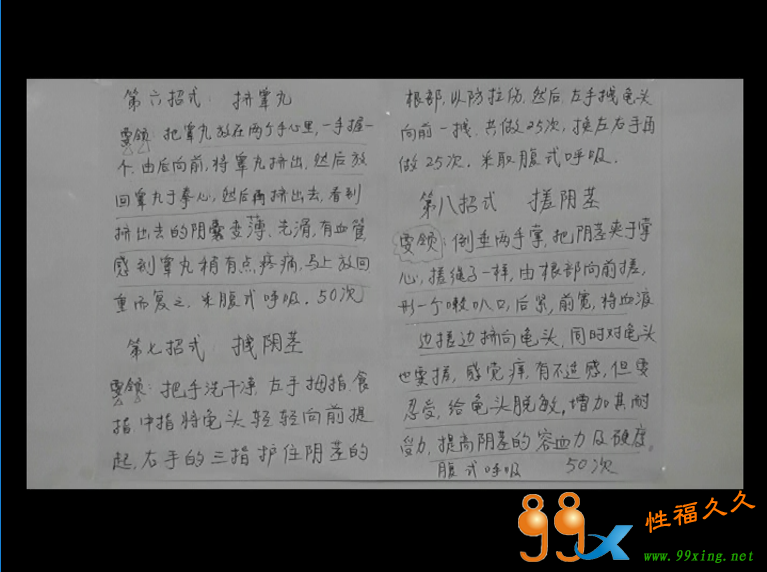 第六招式: 挤睾丸
要领: 把睾丸放在两个手心里,一手握一
个.由后向前,将睾丸挤出,然后放
回睾丸于拳心,然后再挤出去,看到
挤出去的阴囊变薄、光滑,有血管
感到睾丸稍有点疼痛,马上放回
重而复之. 采腹式呼吸. 50次
第七招式: 拽阴茎
要领: 把手洗干净,左手拇指.食
指.中指将龟头轻轻向前提
起.右手的三指护住阴茎的
根部,以防拉伤.然后,左手拽龟头
向前一拽.共做25次,换左右手再
做25次.采取腹式呼吸.
第八招式 搓阴茎
要领:倒垂两手掌,把阴茎夹于掌
心,搓绳子一样,由根部向前搓,
形一个喇叭口,后紧,前宽,将血液
边搓边挤向龟头,同时对龟头
也要搓,感觉痒,有不适感,但要
忍受,给龟头脱敏,增加其耐
受力,提高阴茎的容血力及硬度。
腹式呼吸 50次
99x 性福久久
www.99xing.net